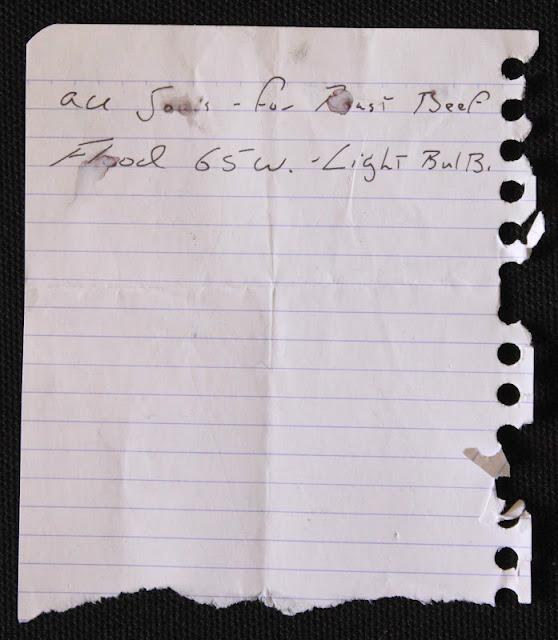 au - for Roast Beef
Flood 65 w. - Light BulB.